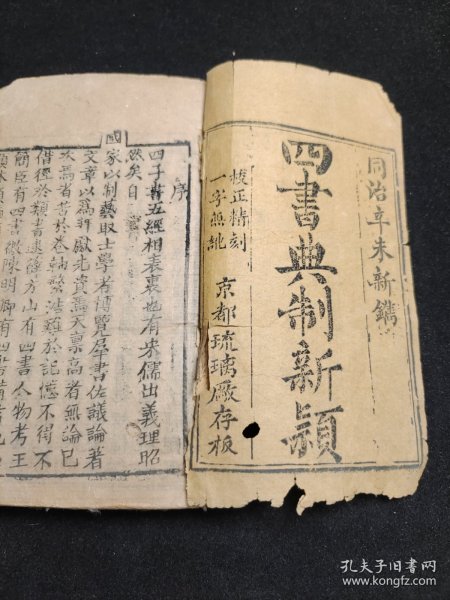 同治辛未新鐫
四書典制新穎
校正精刻
一字無訛
京都琉璃厰存板
序
四子書五經相表裏也有宋儒出義理昭
然矣自
國家以制藝取士學者博覽群書佐議論著
文章以為拜獻先資焉天禀高者無論已
次焉者苦於卷軸繁浩難於記憶不得不
借徑於類書速薛方山有四書人物考王
簡臣有四書徵陳明卿有四書備考
孔夫子旧书网
www.kongfz.com